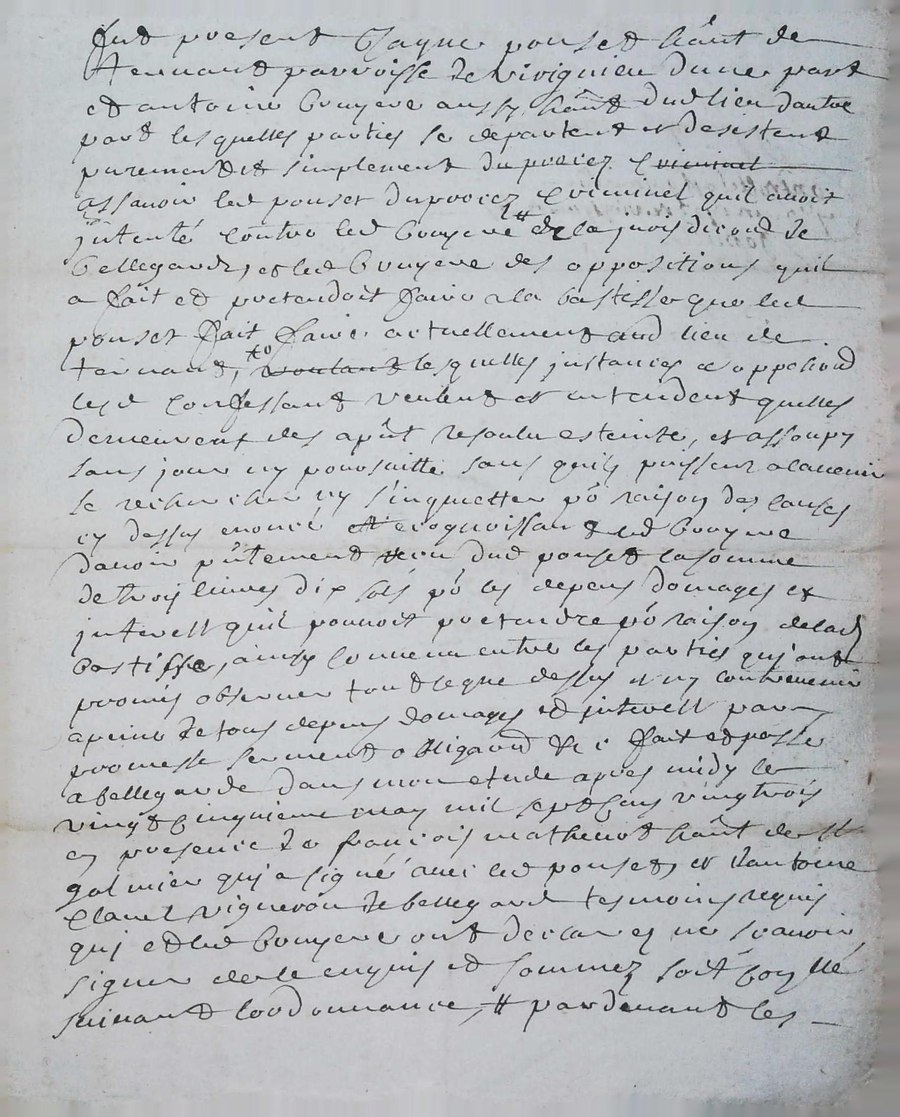 fut present Jayme pouset hânt de
ternand parroisse de virignieu dune part
et antoine bruyere aussy hânt dud lieu dautre
part lesquelles parties se departent et desistent
purement et simplement du procez criminel
assavoir led pouset du procez criminel quil avoit
intenté contre led bruyere # de la jurisdicond de
bellegarde, et led bruyere des oppositions quil
a fait et pretendoit faire a la bastisse que led
pouset fait faire actuellement aud lieu de
ternand, voulant lesquelles instances et opposiond
lesd confessant veulent et entendent quelles
demeurent des apñt resoulu esteinte, et assoupy
sans jour ny poursuitte sans quils puissent a ladvenir
se rechercher ny sinquietter pô raison des causes
cy dessus enoncé et recognoissant led bruyere
davoir pñtement receu dud pouset la somme
de trois livres dix sols pô les depens domages et
interest quil pouvoit pretendre pô raison de lad
bastisse, ainsy convenu entre les parties qui ont
promis observer tout ce que dessus et ny contrevenir
a peine de tous depens domages et interest par
promesse serment obligaond &c fait et passé
a bellegarde dans mon etude apres midy le
vingt cinquieme may mil sept cens vingt trois
en presence de francois mathevot hânt de st
galmier qui a signé avec led pouset, et dantoine
clavel vigneron de bellegarde tesmoins requis
qui et led bruyere ont declarez ne scavoir
signer de ce enquis et sommez soit con^llé
suivant lordonnance, # pardevant les